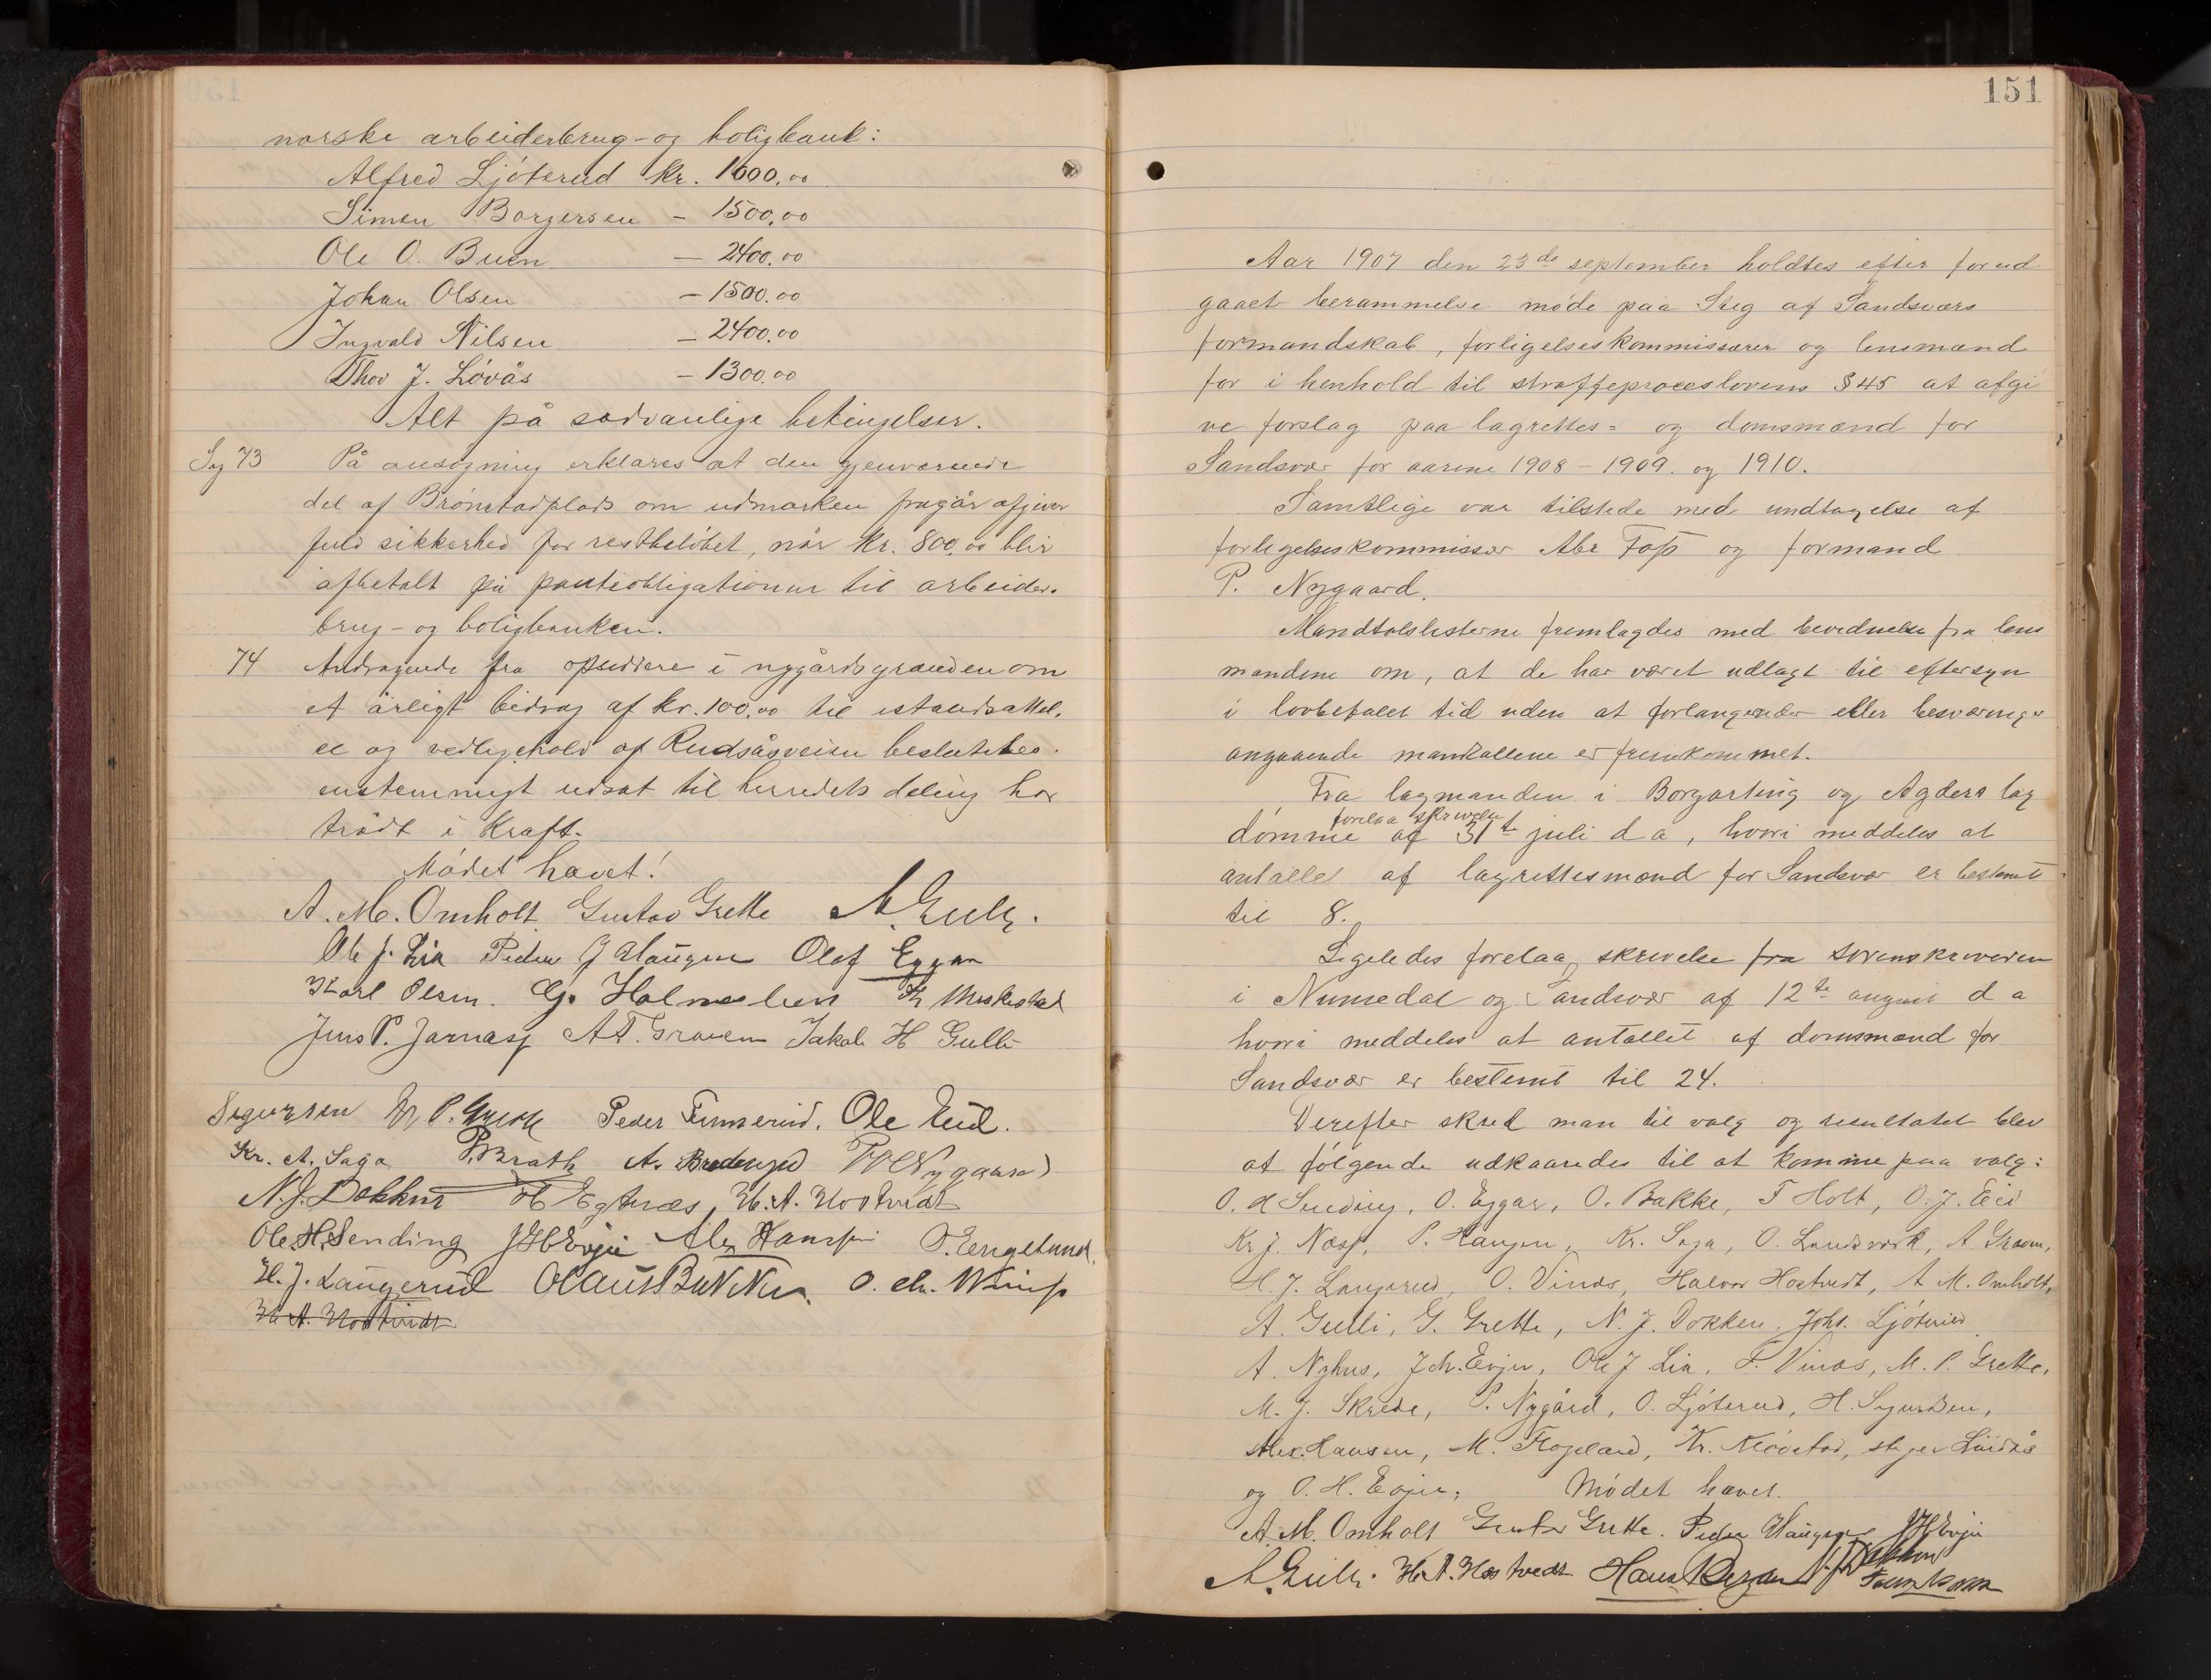 norske arbeiderbrug- og boligbank:
Alfred Ljóterud kr. 1600.00
Simen Borgersen – 1500.00
Ole O. Buin — 2400.00
Johan Olsen – 1500.00
Ingvald Nilsen – 2400.00
Thov J. Lóvås – 1300.00
Alt på sædvanlige betingelser.
Sag 73 På ansøgning erklæres at den gjenværende
del af Brónstadplads om udmarken fragår afgiver
fuld sikkerhed for restbelóbet, når kr. 800,00 blir
afbetalt på panteobligationen til arbeider-
brug- og boligbanken.
74 Andragende fra opsiddere i nygårdsgrænden om
et årligt bidrag af kr. 100,00 til istandsættel-
se og vedligehold af Rudsåsveien besluttedes
enstemmigt udsat til herredets deling har
trådt i kraft.
Módet hævet!
A. M. Omholt Gustav Grette A. Gulli.
Ole J. Lia Peder J Haugen Olof Eggar
Karl Olsen. G. Holmeslien
Jens P. Jarnæss A T. Graven Jakob H Gulli
Segursen M. P. Grette Peder Temmerud. Ole Eid.
Kr. A. Saga P. Brath A. Bredesgd P Nygaard
N. J. Dokken H. A. Hostvedt
Ole H. Sending J H Evju Alex Hansen O. Engelund
H. J. Langerud Olaus Bakken O. Chr. Winness
H. A. Hostvedt
151
Aar 1907 den 23de september holdtes efter forud
gaaet berammelse móde paa Steg af Sandsværs
formandskab, forligelseskommissærer og lensmænd
for i henhold til straffeproceslovens § 45 at afgi
ve forslag paa lagrettes= og domsmænd for
Sandsvær for aarene 1908 – 1909. og 1910.
Samtlige var tilstede med undtagelse af
forligelseskommissær Abr Foss og formand
P. Nygaard.
Mandtalslisterne fremlagdes med bevidnelse fra lens
mændene om, at de har været udlagt til eftersyn
i lovbefalet tid uden at forlangender eller besværinger
angaaende mantallene er fremkommet.
Fra lagmanden i Borgarting og Agders lag
dómme forelaa skrivelse af 31te juli d a, hvori meddeles at
antallet af lagrettesmænd for Sandsvær er bestemt
til 8.
Ligeledes forelaa skrivelse fra sorenskriveren
i Numedal og Sandsvær af 12te august d a
hvori meddeles at antallet af domsmænd for
Sandsvær er bestemt til 24.
Derefter skred man til valg og resultatet blev
at fólgende udkaaredes til at komme paa valg:
O. H Sending, O. Eggar, O. Bakke, T Holt, O. J. Eid
Kr J. Næss, P. Haugen, Kr. Saga, O. Landsværk, A Graven,
H. J. Langerud, O. Vinæs, Halvor Hostvedt, A. M. Omholt,
A. Gulli, G. Grette, N. J. Dokken, Joh. Ljóterud
A. Nyhus, J. H. Evju, Ole J. Lia, F. Vinæs, M. P. Grette,
M. J. Skrede, P. Nygård, O. Ljóterud, H. Segursen,
Alex. Hansen, M. Flogeland, Kr. Klóvstad, stiger Lindås
og O. H. Evju, Módet hævet.
A. M. Omholt Gustav Grette. Peder Haugen J H Evju
A. Gulli. H. A. Hostvedt Hans N. J. Dokken